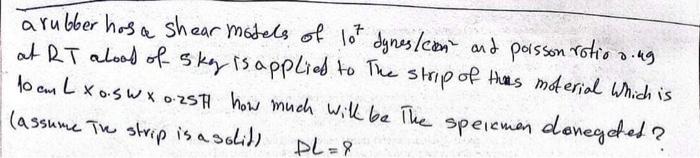 a rubber has a shear models of 10⁷ dynes/cm² and poisson ratio 0.49
at RT a load of 5 kg is applied to The strip of this material which is
10 cm L x 0.5 W x 0.25 H how much will be The speicmen elonegated ?
(assume The strip is a solid) DL = ?